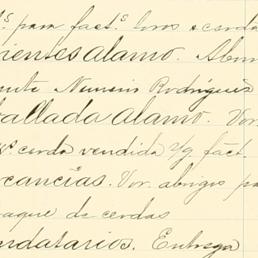 s. para fact.s toros e cerda
rientes alamo. Abon
ante Nemesio Rodríguez
rallada Alamo. Vor.
cerda vendida s/g fact.
rcancías. Vor. abrigos pa
raque de cerdas
ndatarios. Entrega